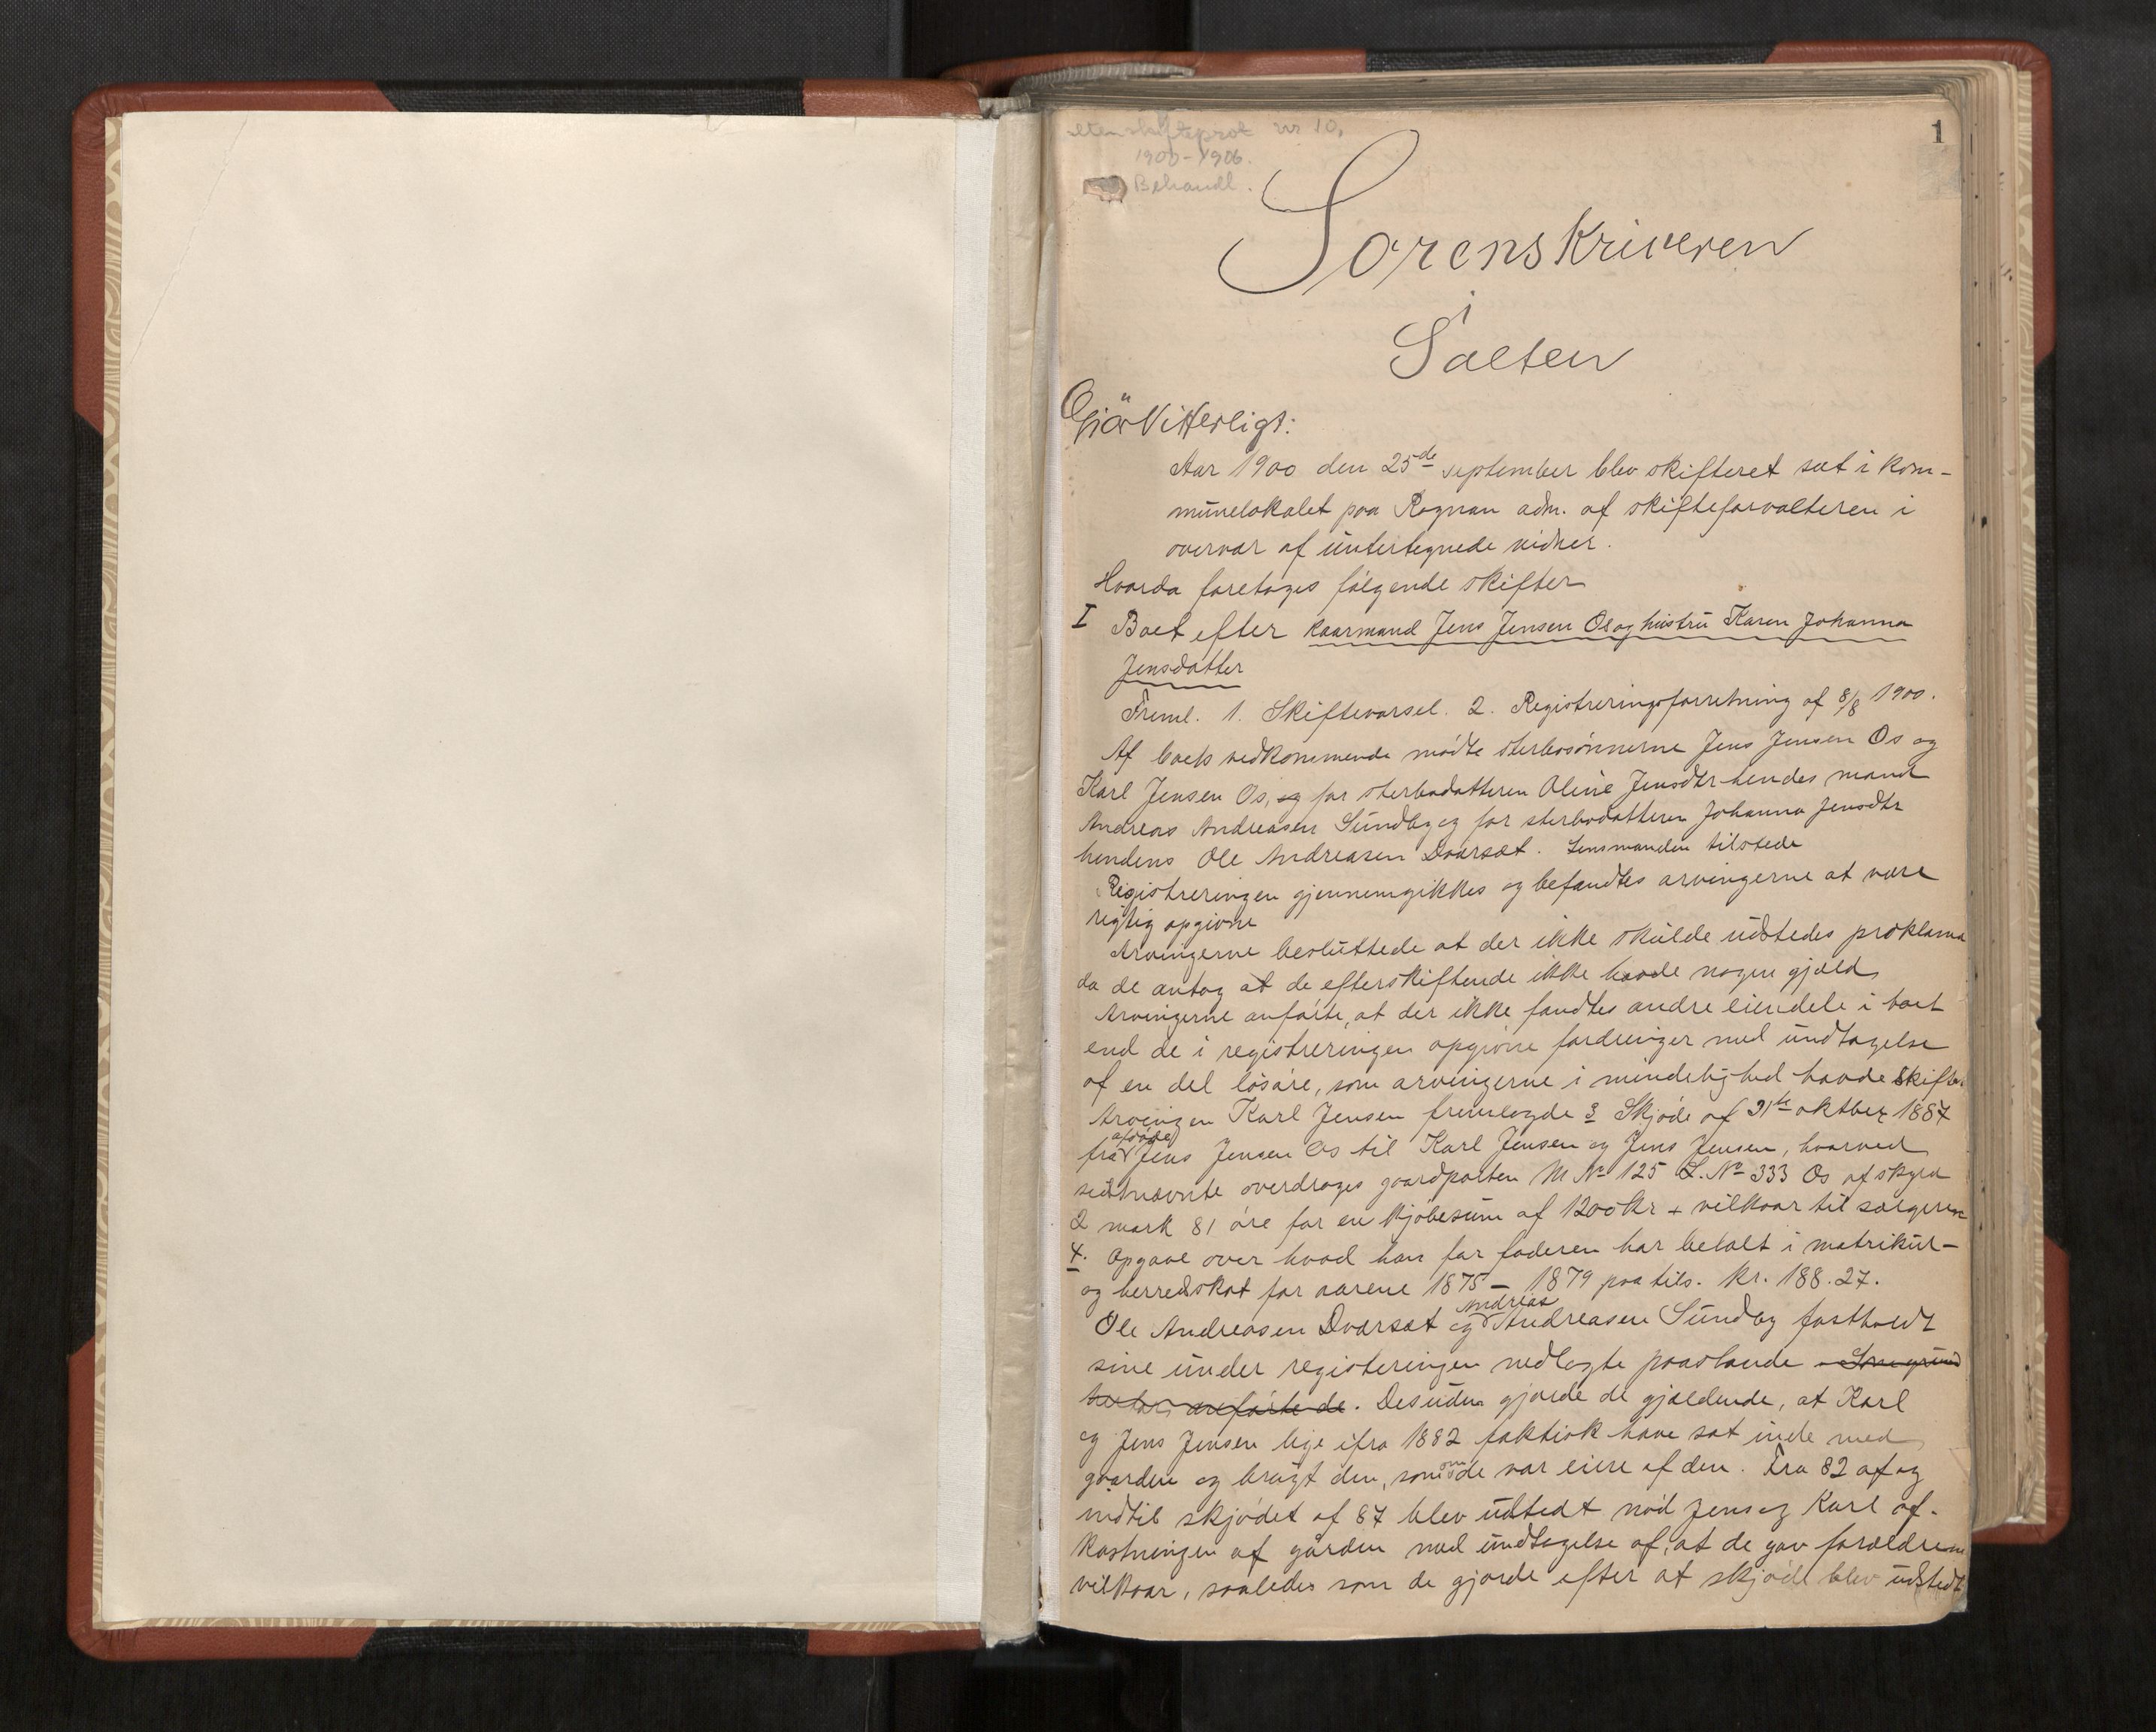 skifteprot nr 10,
1900-1906.
Behandl.
1
Sorenskriveren
i
Salten
Giør Vitterligt:
Aar 1900 den 25de september blev skifteret sat i kom-
munelokalet paa Rognan adm. af skifteforvalteren i
overvær af undertegnede vidner.
Hvorda foretoges følgende skifter
I Boet efter kaarmand Jens Jensen Os og hustru Karen Johanna
Jensdatter
Freml. 1. Skiftevarsel. 2. Registreringsforretning af 8/8 1900.
Af boets vedkommende mødte sterbosønnerne Jens Jensen Os og
Karl Jensen Os, og for sterbodatteren Oline Jensdtr hendes mand
Andreas Andreasen Sundby og for sterbodatteren Johanna Jensdtr
hendens Ole Andreasen Dværsæt. Lensmanden tilstede
Registreringen gjennemgikkes og befandtes arvingerne at være
rigtig opgivne
Arvingerne besluttede at der ikke skulde udstedes proklama
da de antog at de efterskiftende ikke havde nogen gjæld
Arvingerne anførte, at der ikke fandtes andre eiendele i boet
end de i registreringen opgivne fordringer med undtagelse
af en del løsøre, som arvingerne i mindelighed havde skiftet
Arvingen Karl Jensen fremlagde 3 Skjøde af 31te oktber 1887
fra afdøde Jens Jensen Os til Karl Jensen og Jens Jensen, hvorved
sidstnævnte overdrages gaardparten M No 125 L. No 333 Os af skyld
2 mark 81 øre for en kjøbesum af 1200 kr + vilkaar til sælgeren
4. Opgave over hvad han for faderen har betalt i matrikul-
og herredskat for aarene 1875 - 1879 paa tils. kr. 188.27.
Ole Andreasen Dværsæt og Andreas Andreasen Sundby fastholdt
sine under registeringen nedlagte paastande Som grund
herfor anførte de. Desuden gjorde de gjældende, at Karl
og Jens Jensen lige ifra 1882 faktisk have sat inde med
gaarden og brugt den, som om de var eiere af den. Fra 82 af og
indtil skjødet af 87 blev udstedt nød Jens og Karl af-
kastningen af gården med undtagelse af, at de gav forældrene
vilkaar, saaledes som de gjorde efter at skjøde blev udstedt